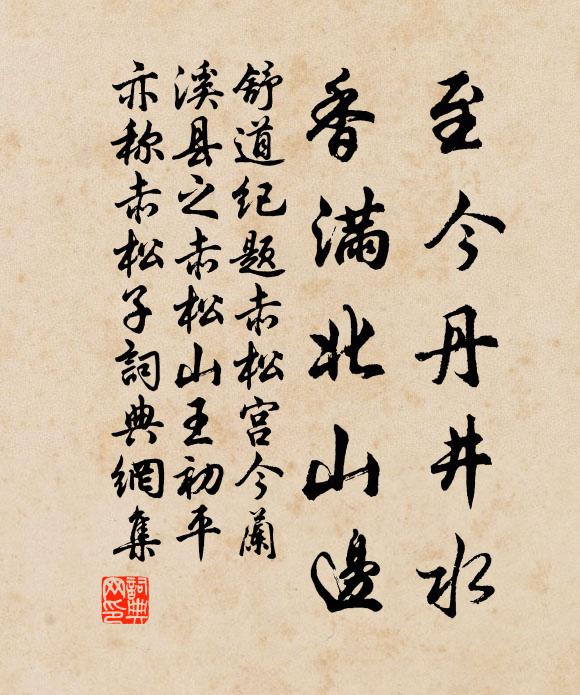 至今丹井水
香滿北山邊
舒道纪题赤松宫今蘭
溪县之赤松山王初平
亦称赤松子詞典網集
詞典网印